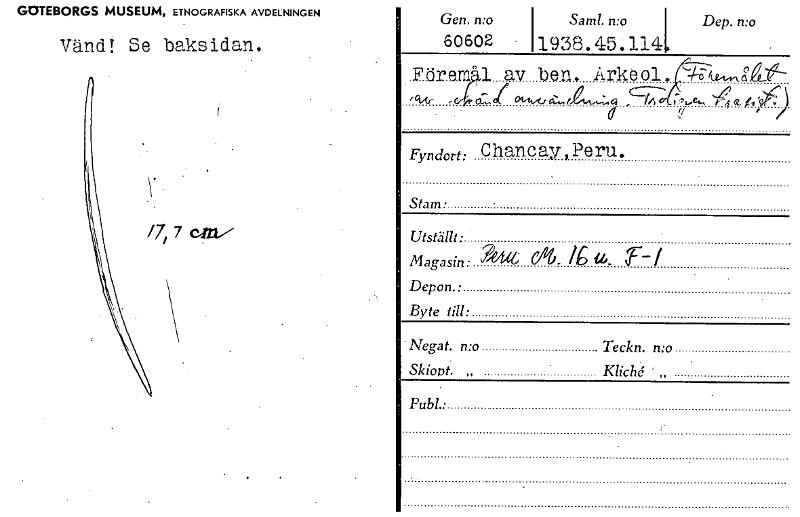 GÖTEBORGS MUSEUM, ETNOGRAFISKA AVDELNINGEN
Vänd! Se baksidan.
17,7 cm
Gen. n:o
60602
Saml. n:o
1938.45.114.
Dep. n:o
Föremål av ben. Arkeol. (Föremålet
av okänd användning. Troligen trasigt.)
Fyndort: Chancay, Peru.
Stam:
Utställt:
Magasin: Peru M. 16 u. F-1
Depon.:
Byte till:
Negat. n:o Teckn. n:o
Skiopt. „ Kliché „
Publ.: